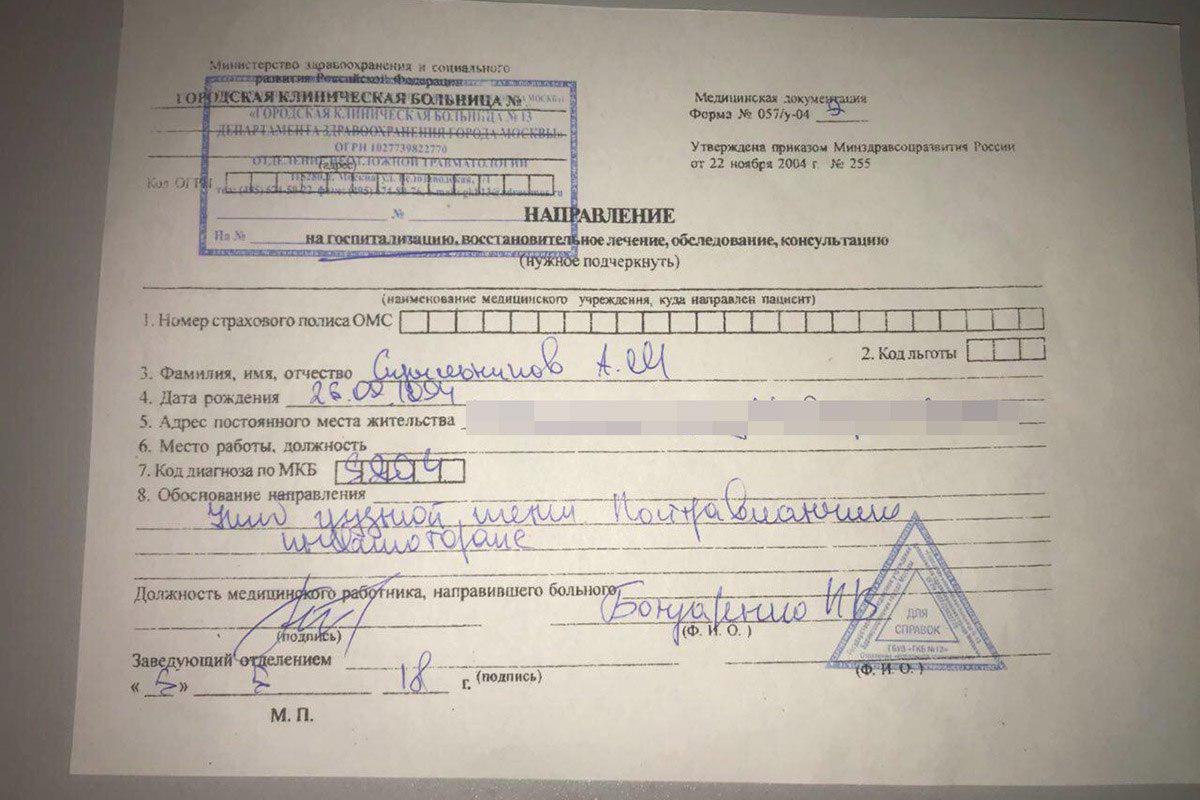 Министерство здравоохранения и социального
развития Российской Федерации
ГОРОДСКАЯ КЛИНИЧЕСКАЯ БОЛЬНИЦА №
«ГОРОДСКАЯ КЛИНИЧЕСКАЯ БОЛЬНИЦА № 13
ДЕПАРТАМЕНТА ЗДРАВООХРАНЕНИЯ ГОРОДА МОСКВЫ»
ОГРН 1027739822770
ОТДЕЛЕНИЕ НЕОТЛОЖНОЙ ТРАВМАТОЛОГИИ
(адрес)
Код ОГРН
№
На №
Медицинская документация
Форма № 057/у-04
Утверждена приказом Минздравсоцразвития России
от 22 ноября 2004 г. № 255
НАПРАВЛЕНИЕ
на госпитализацию, восстановительное лечение, обследование, консультацию
(нужное подчеркнуть)
(наименование медицинского учреждения, куда направлен пациент)
1. Номер страхового полиса ОМС
2. Код льготы
3. Фамилия, имя, отчество А. М
4. Дата рождения
5. Адрес постоянного места жительства
6. Место работы, должность
7. Код диагноза по МКБ S204
8. Обоснование направления
Ушиб грудной
Должность медицинского работника, направившего больного
Бондаренко
(подпись)
(Ф. И. О. )
Заведующий отделением
(подпись)
(Ф. И. О. )
« 5 » 5 18 г.
М. П.
ДЛЯ
СПРАВОК
ГБУЗ «ГКБ №13»